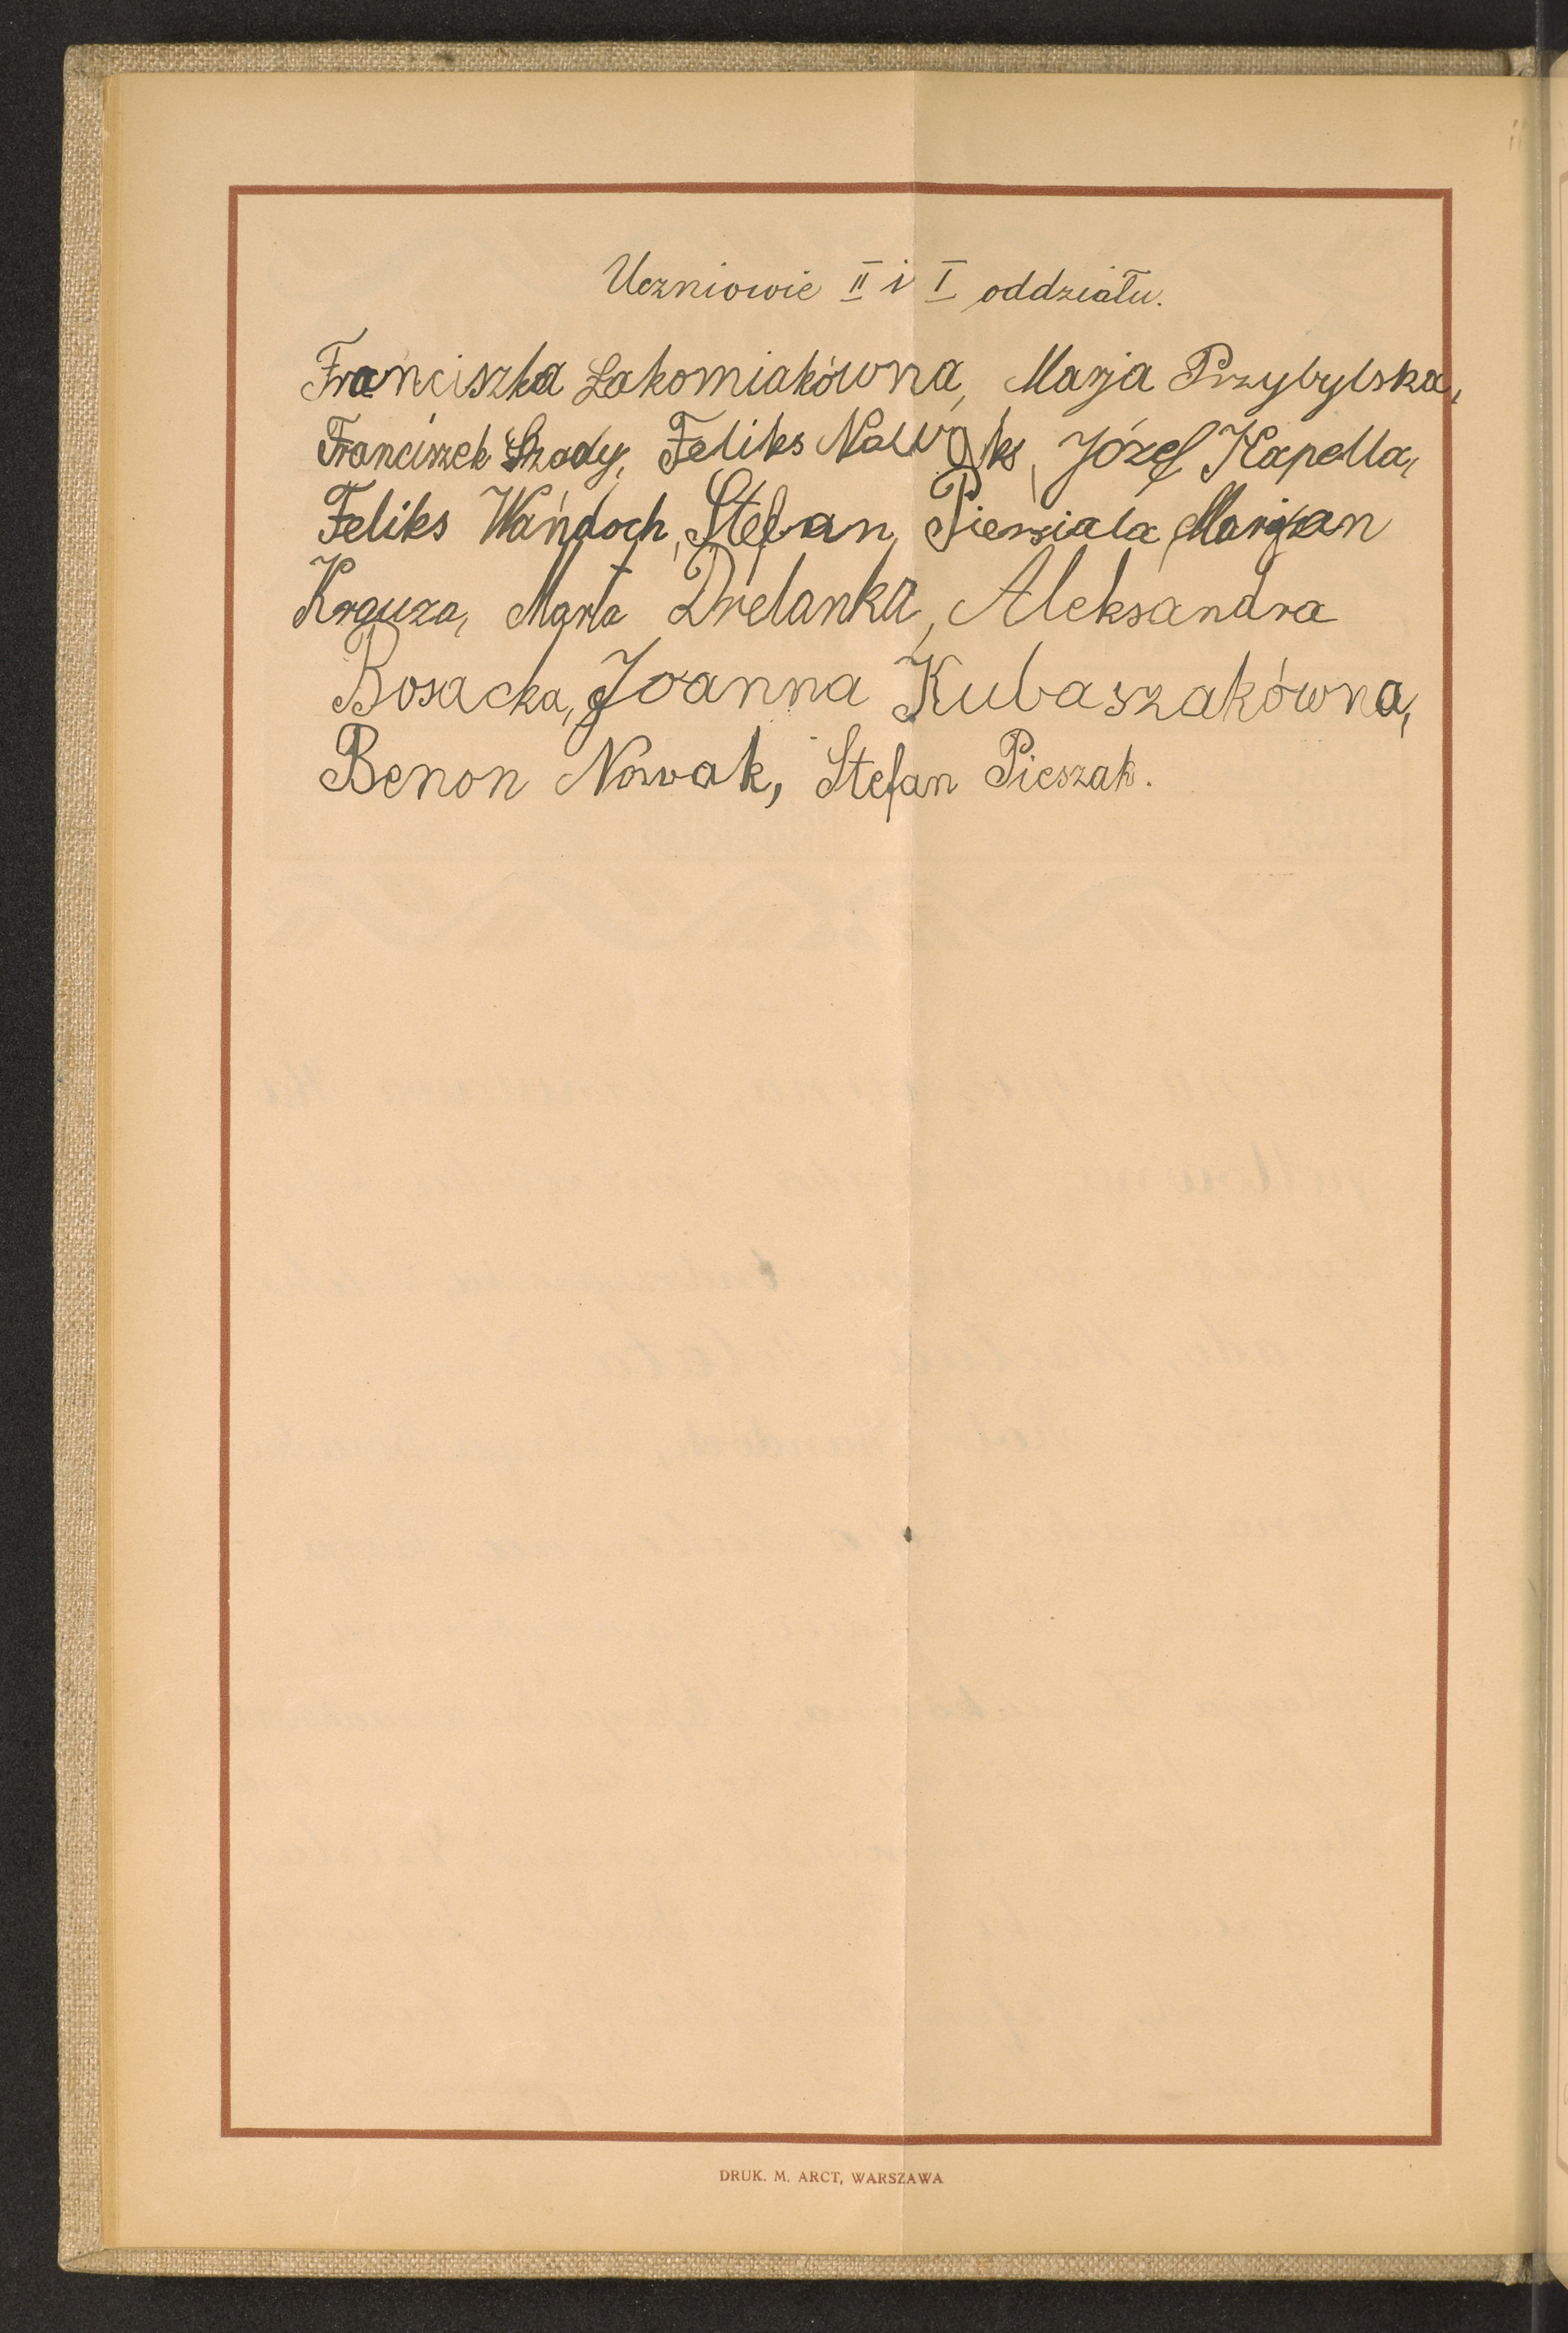 Uczniowie II i I oddziału.
Franciszka Łakomiakówna, Marja Przybylska,
Franciszek Szady, Feliks Nowak, Józef Kapella,
Feliks Wańdoch, Stefan, Piersiala, Marjan
Krauza, Marta Drelanka, Aleksandra
Bosacka, Joanna Kubaszakówna,
Benon Nowak, Stefan Pieszak.
DRUK. M. ARCT, WARSZAWA